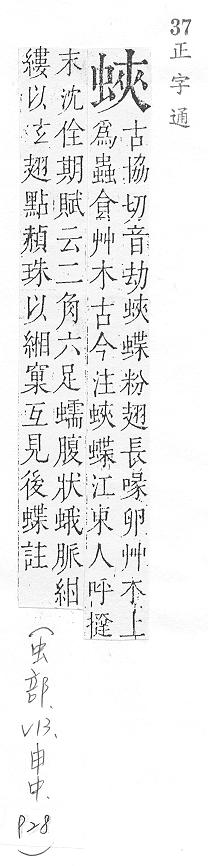 37
正字通
蛺
古協切音劫蛺蝶粉翅長喙卵艸木上
爲蟲食艸木古今注蛺蝶江東人呼撻
末沈佺期賦云二角六足蠕腹狀蛾脈緗
縷以玄翅點赬珠以緗窠互見後蝶註
(虫部、VB、申中、P28)